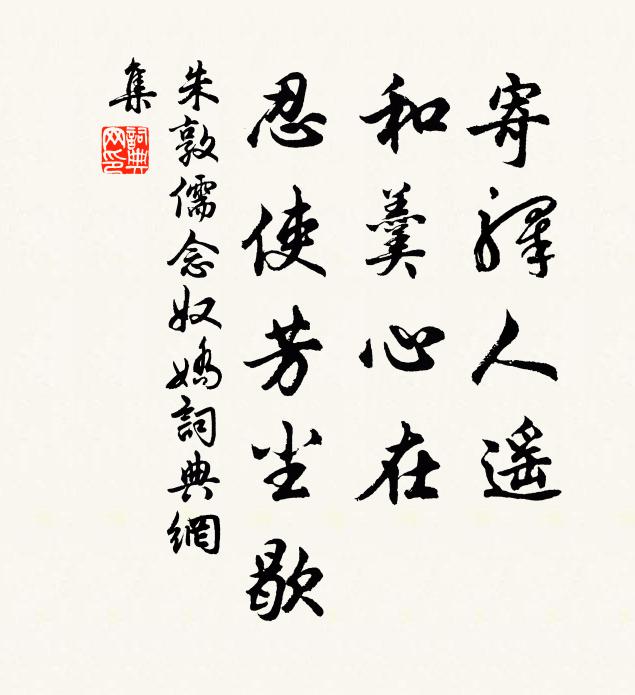 寄驛人遥
和羹心在
忍使芳尘歇
朱敦儒念奴嬌詞典網
集
詞典
网印